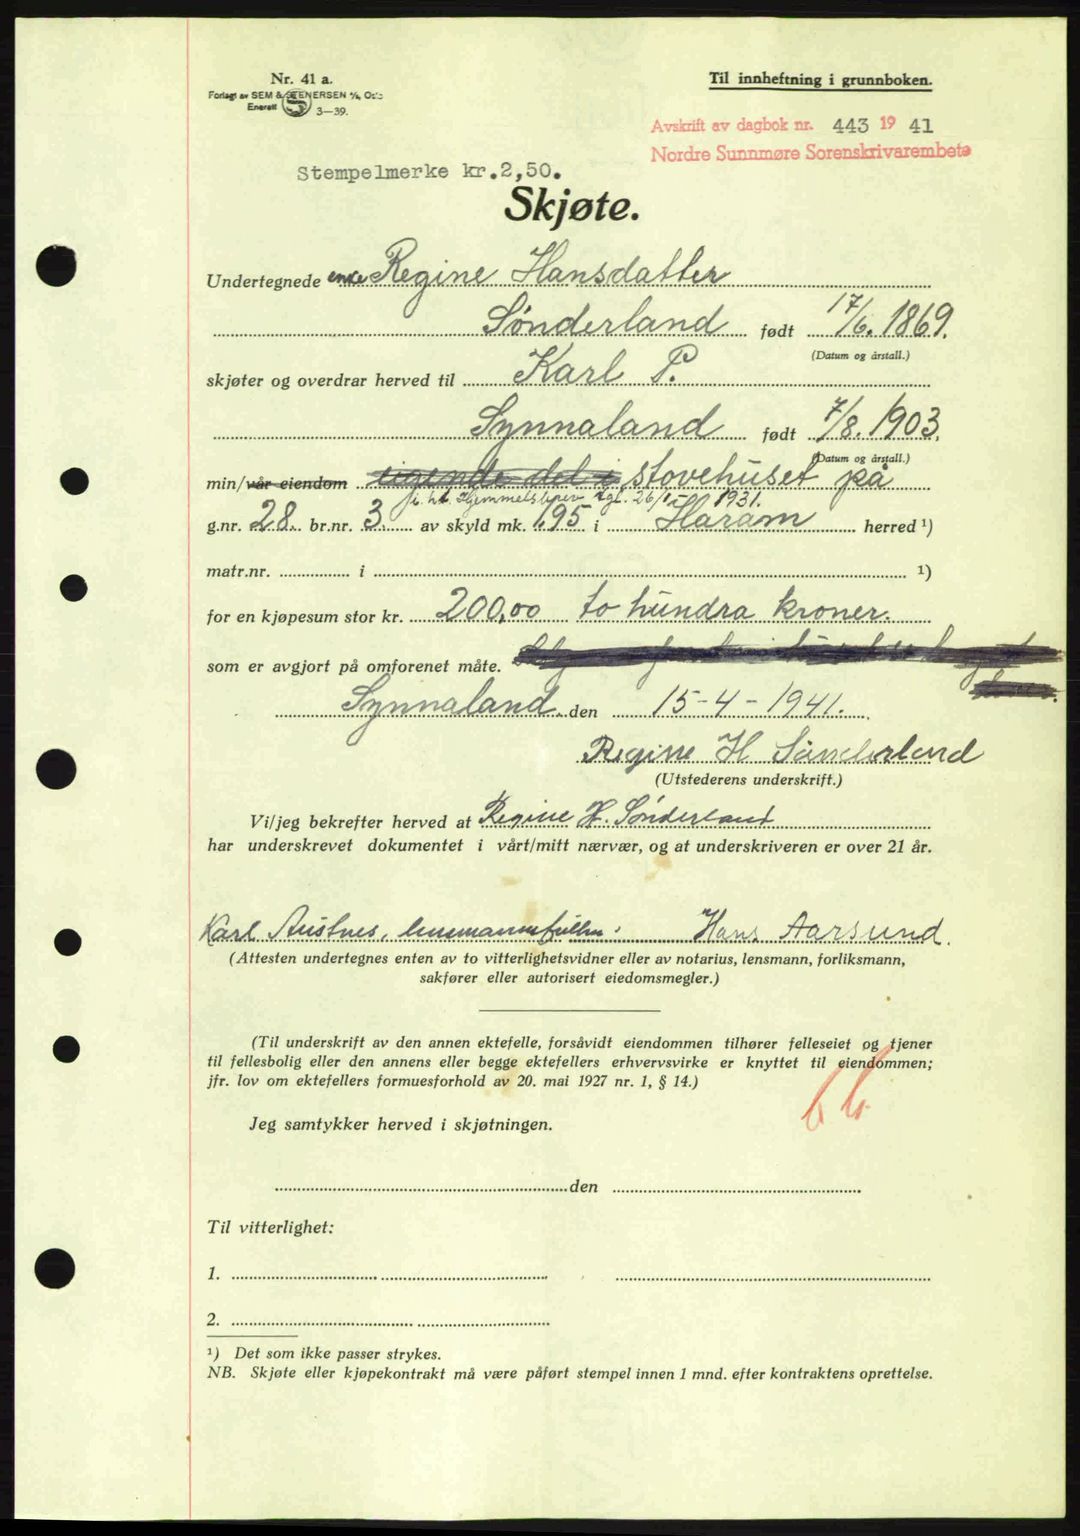 Nr. 41 a.
Forlagt av SEM & STENERSEN A/S, Oslo
Enerett S 3—39.
Til innheftning i grunnboken.
Avskrift av dagbok nr. 443 19 41
Nordre Sunnmøre Sorenskrivarembete
Stempelmerke kr.2,50.
Skjøte.
Undertegnede enke Regine Hansdatter
Sønderland født 17/6. 1869.
(Datum og årstall.)
skjøter og overdrar herved til Karl P.
Synnaland født 7/8. 1903.
(Datum og årstall.)
min/vår eiendom eigende del i stovehuset på
i. h. t. Hjemmelsbrev tgl. 26/1 1931.
g.nr. 28 br.nr. 3 av skyld mk. 1,95 i Haram herred ¹)
matr.nr. i ¹)
for en kjøpesum stor kr. 200,00 to hundra kroner.
som er avgjort på omforenet måte.
Synnaland den 15-4-1941.
Regine H Sønderland
(Utstederens underskrift.)
Vi/jeg bekrefter herved at Regine H. Sønderland
har underskrevet dokumentet i vårt/mitt nærvær, og at underskriveren er over 21 år.
Karl Austnes, lensmannsfullm. Hans Aarsund.
(Attesten undertegnes enten av to vitterlighetsvidner eller av notarius, lensmann, forliksmann,
sakfører eller autorisert eiedomsmegler.)
(Til underskrift av den annen ektefelle, forsåvidt eiendommen tilhører felleseiet og tjener
til fellesbolig eller den annens eller begge ektefellers erhvervsvirke er knyttet til eiendommen;
jfr. lov om ektefellers formuesforhold av 20. mai 1927 nr. 1, § 14.)
Jeg samtykker herved i skjøtningen.
den
Til vitterlighet:
1.
2.
¹) Det som ikke passer strykes.
NB. Skjøte eller kjøpekontrakt må være påført stempel innen 1 mnd. efter kontraktens oprettelse.